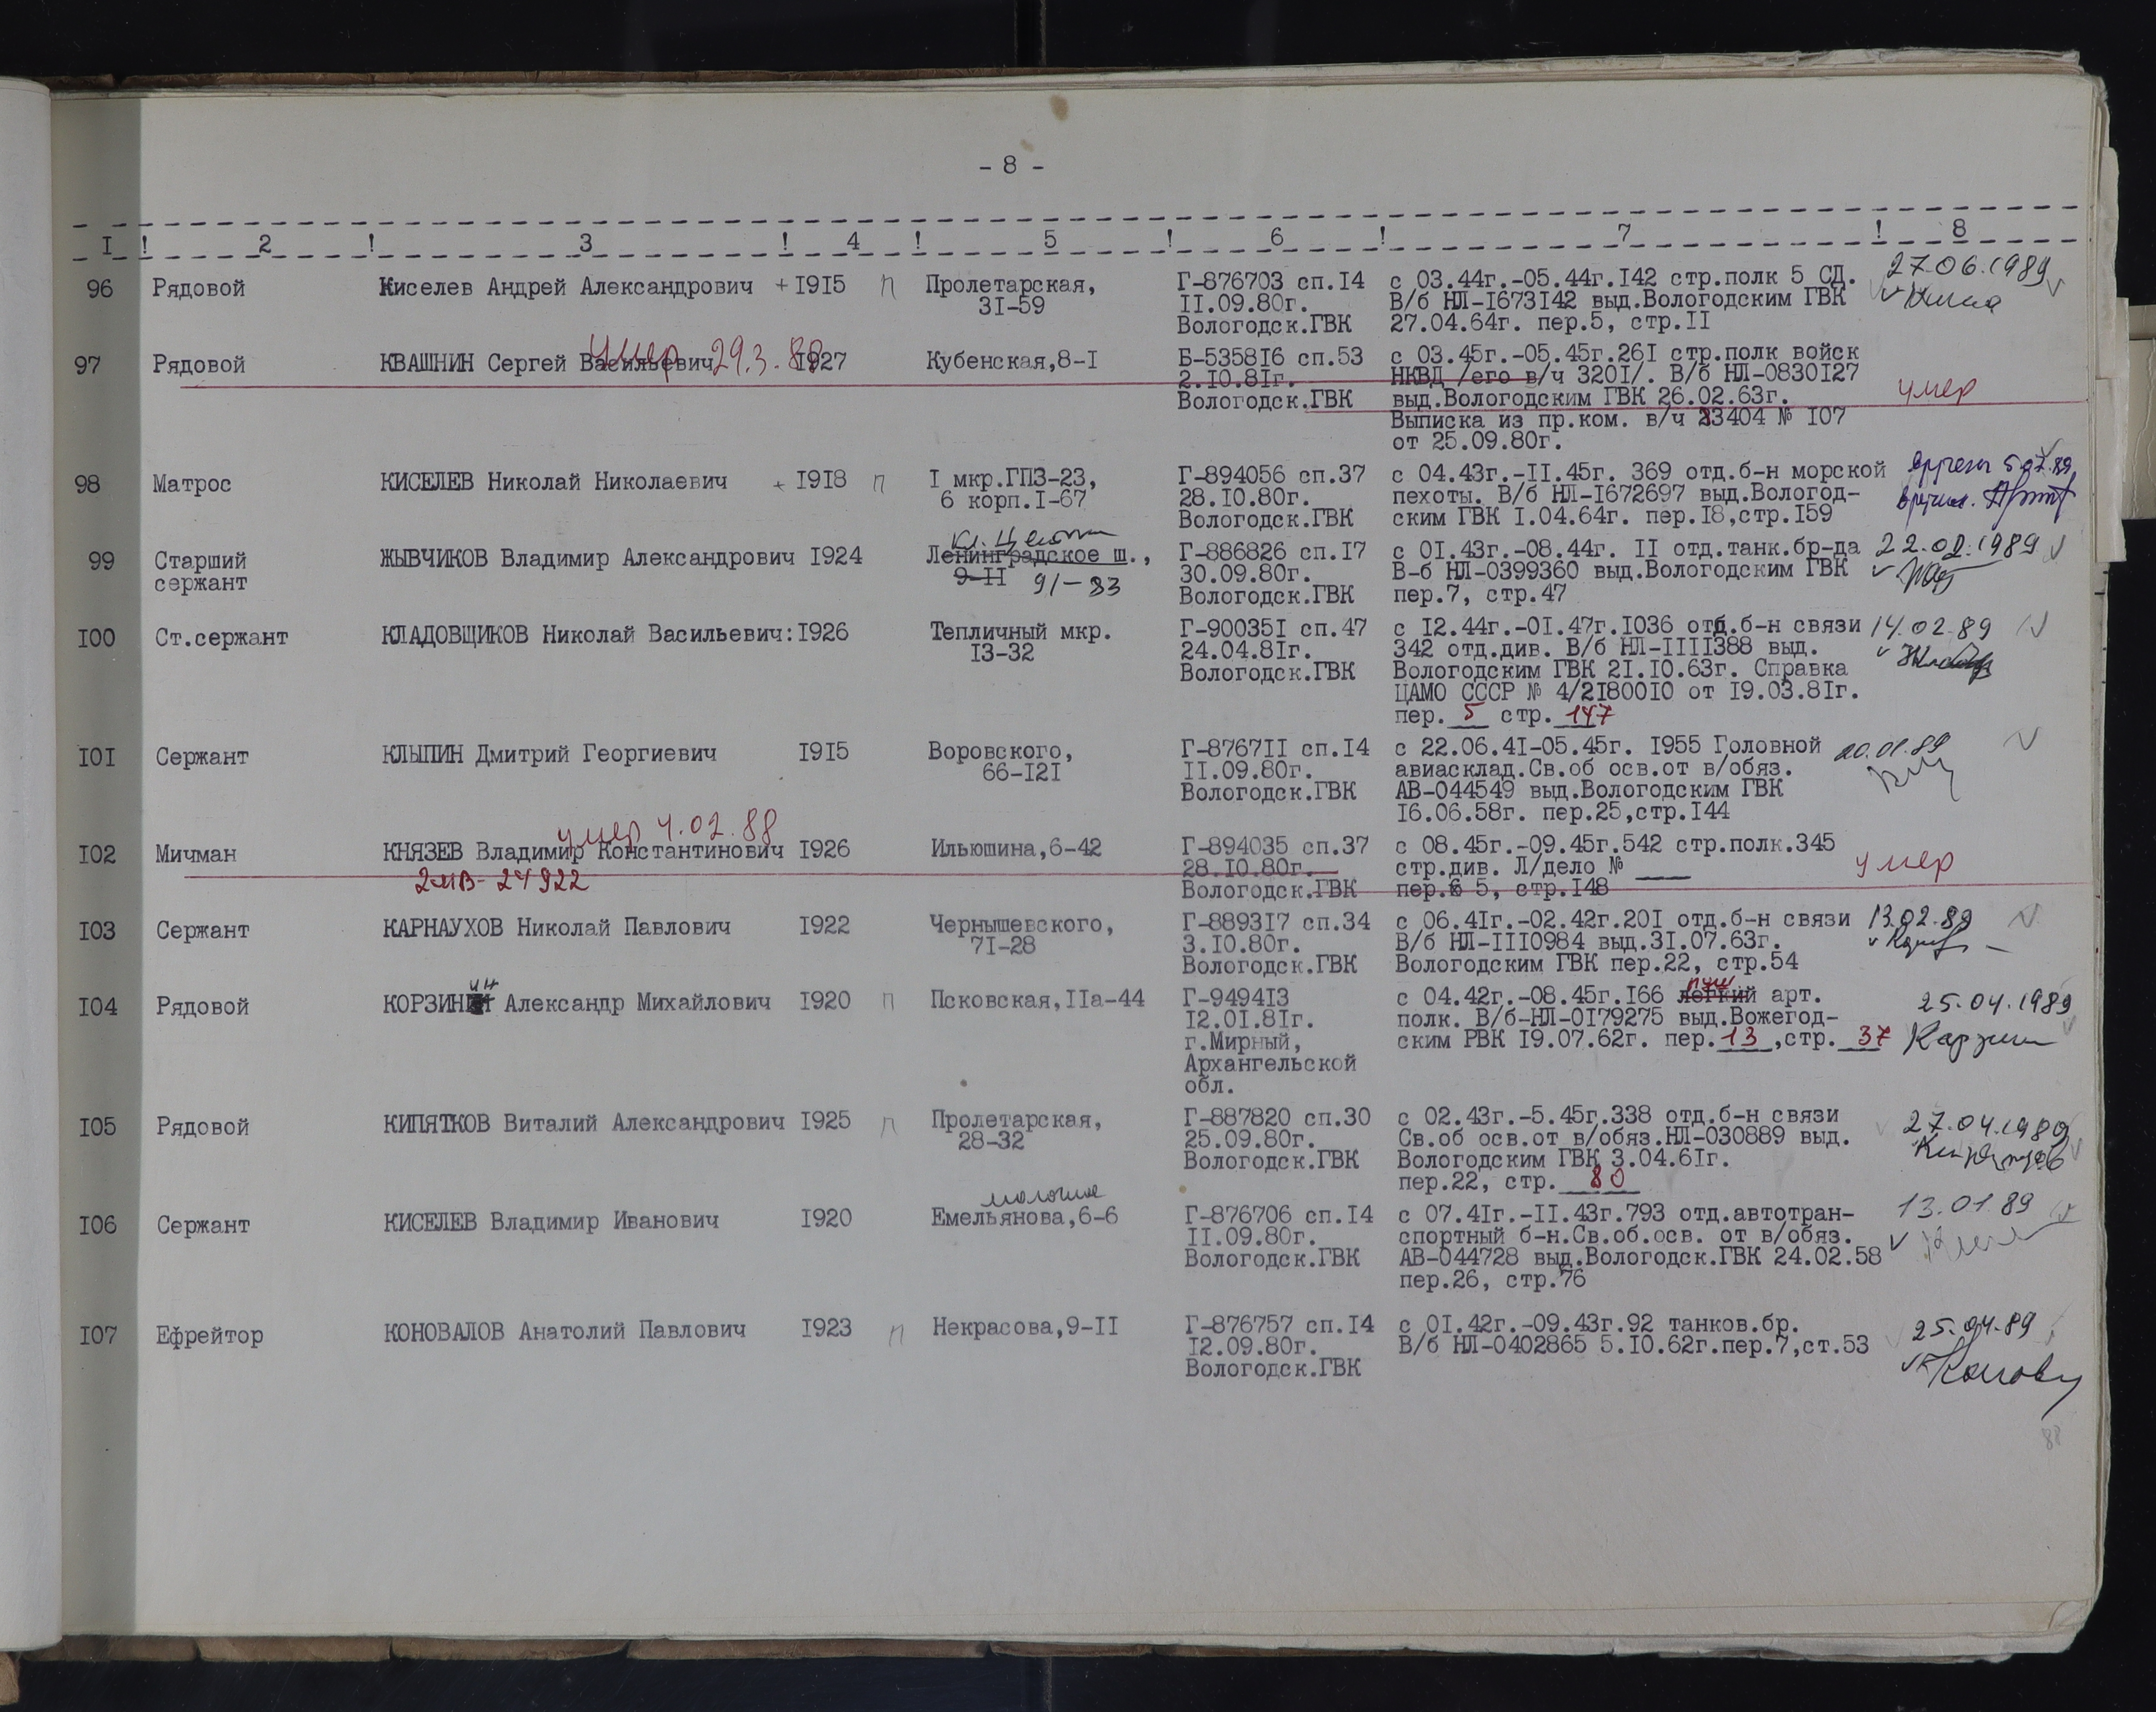 - 8 -
I ! 2 ! 3 ! 4 ! 5 ! 6 ! 7 ! 8
96 Рядовой Киселев Андрей Александрович + I9I5 п Пролетарская, Г-876703 сп.I4 с 03.44г.-05.44г.I42 стр.полк 5 СД. 27.06.1989
3I-59 II.09.80г. В/б НЛ-I673I42 выд.Вологодским ГВК
Вологодск.ГВК 27.04.64г. пер.5, стр.II
умер 29.3.88
97 Рядовой КВАШНИН Сергей Васильевич I927 Кубенская,8-I Б-5358I6 сп.53 с 03.45г.-05.45г.26I стр.полк войск
2.I0.8Iг. НКВД /его в/ч 320I/. В/б НЛ-0830I27
Вологодск.ГВК выд.Вологодским ГВК 26.02.63г. умер
Выписка из пр.ком. в/ч 23404 № I07
от 25.09.80г.
98 Матрос КИСЕЛЕВ Николай Николаевич + I9I8 п I мкр.ГПЗ-23, Г-894056 сп.37 с 04.43г.-II.45г. 369 отд.б-н морской
6 корп.I-67 28.I0.80г. пехоты. В/б НЛ-I672697 выд.Вологод-
Вологодск.ГВК ским ГВК I.04.64г. пер.I8,стр.I59
99 Старший ЖЫВЧИКОВ Владимир Александрович I924 Ленинградское ш., Г-886826 сп.I7 с 0I.43г.-08.44г. II отд.танк.бр-да 22.02.1989
сержант 9-II 91-83 30.09.80г. В-б НЛ-0399360 выд.Вологодским ГВК
Вологодск.ГВК пер.7, стр.47
I00 Ст.сержант КЛАДОВЩИКОВ Николай Васильевич:I926 Тепличный мкр. Г-90035I сп.47 с I2.44г.-0I.47г.I036 отд.б-н связи 14.02.89
I3-32 24.04.8Iг. 342 отд.див. В/б НЛ-IIII388 выд.
Вологодск.ГВК Вологодским ГВК 2I.I0.63г. Справка
ЦАМО СССР № 4/2I800I0 от I9.03.8Iг.
пер. 5 стр. 147
I0I Сержант КЛЫПИН Дмитрий Георгиевич I9I5 Воровского, Г-8767II сп.I4 с 22.06.4I-05.45г. I955 Головной 20.01.89
66-I2I II.09.80г. авиасклад.Св.об осв.от в/обяз.
Вологодск.ГВК АВ-044549 выд.Вологодским ГВК
I6.06.58г. пер.25,стр.I44
умер 4.02.88
I02 Мичман КНЯЗЕВ Владимир Константинович I926 Ильюшина,6-42 Г-894035 сп.37 с 08.45г.-09.45г.542 стр.полк.345
2МВ-24922 28.I0.80г. стр.див. Л/дело № ___ умер
Вологодск.ГВК пер.6 5, стр.I48
I03 Сержант КАРНАУХОВ Николай Павлович I922 Чернышевского, Г-8893I7 сп.34 с 06.4Iг.-02.42г.20I отд.б-н связи 13.02.89
7I-28 3.I0.80г. В/б НЛ-III0984 выд.3I.07.63г.
Вологодск.ГВК Вологодским ГВК пер.22, стр.54
I04 Рядовой КОРЗИНИН Александр Михайлович I920 п Псковская,IIа-44 Г-9494I3 с 04.42г.-08.45г.I66 легкий пуш арт. 25.04.1989
I2.0I.8Iг. полк. В/б-НЛ-0I79275 выд.Вожегод-
г.Мирный, ским РВК I9.07.62г. пер. 13 ,стр. 37
Архангельской
обл.
I05 Рядовой КИПЯТКОВ Виталий Александрович I925 п Пролетарская, Г-887820 сп.30 с 02.43г.-5.45г.338 отд.б-н связи 27.04.1989
28-32 25.09.80г. Св.об осв.от в/обяз.НЛ-030889 выд.
Вологодск.ГВК Вологодским ГВК 3.04.6Iг.
пер.22, стр. 80
молочное
I06 Сержант КИСЕЛЕВ Владимир Иванович I920 Емельянова,6-6 Г-876706 сп.I4 с 07.4Iг.-II.43г.793 отд.автотран- 13.01.89
II.09.80г. спортный б-н.Св.об.осв. от в/обяз.
Вологодск.ГВК АВ-044728 выд.Вологодск.ГВК 24.02.58
пер.26, стр.76
I07 Ефрейтор КОНОВАЛОВ Анатолий Павлович I923 п Некрасова,9-II Г-876757 сп.I4 с 0I.42г.-09.43г.92 танков.бр. 25.04.89
I2.09.80г. В/б НЛ-0402865 5.I0.62г.пер.7,ст.53
Вологодск.ГВК